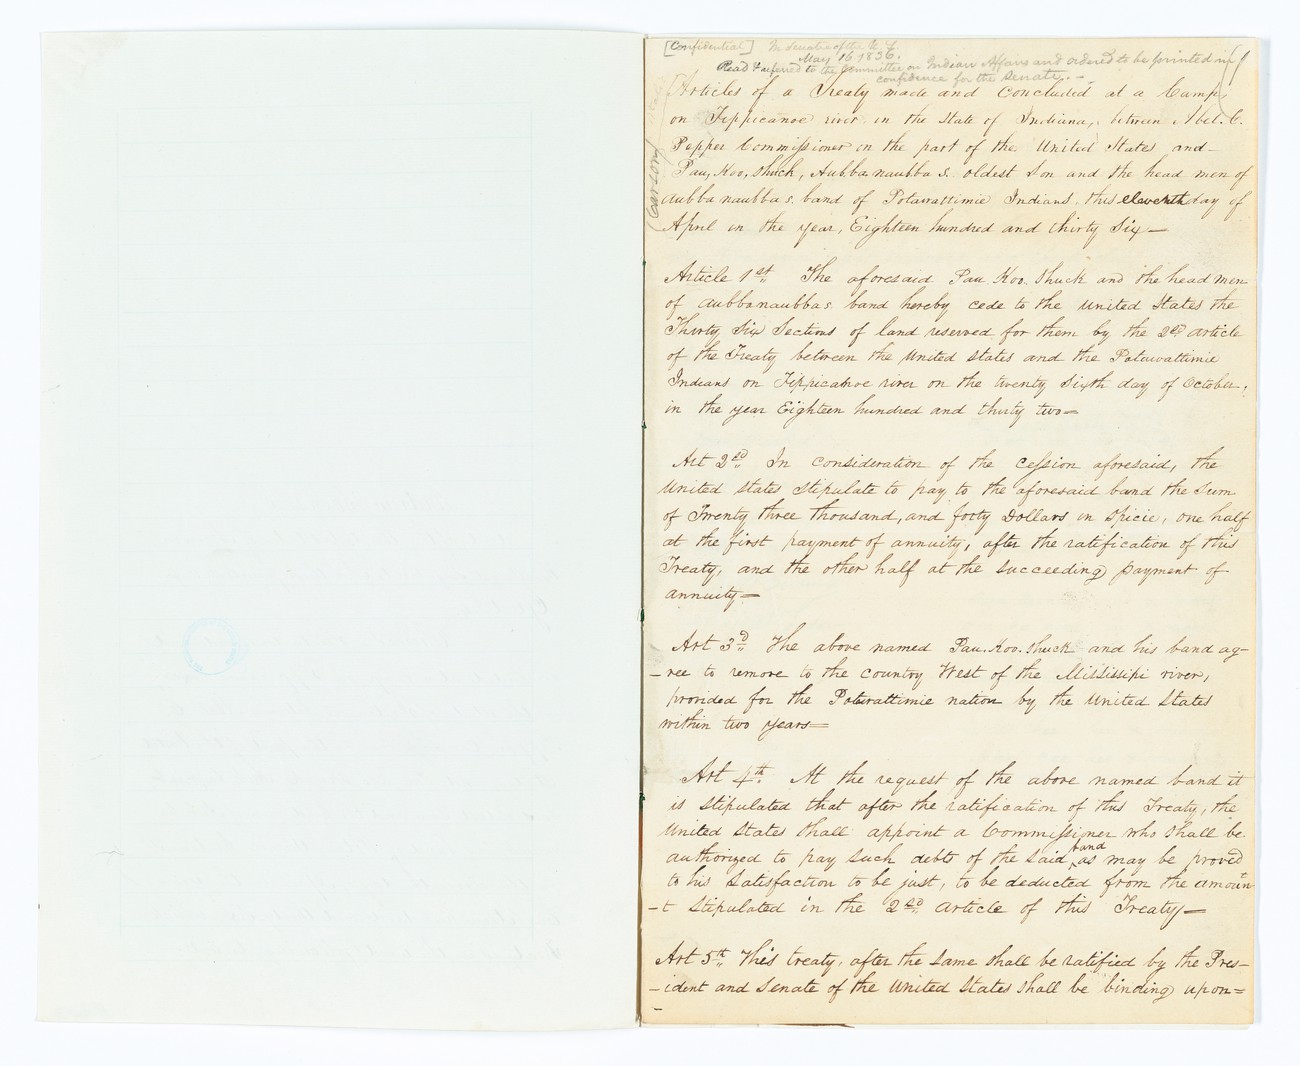 [Confidential] In Senate of the U.S.
May 16 1836.
Read & referred to the Committee on Indian Affairs and ordered to be printed in
confidence for the Senate.
Articles of a Treaty made and concluded at a Camp,
on Tippicanoe river in the State of Indiana, between Abel. C.
Pepper Commissioner on the part of the United States and
Pau, Koo, shuck, Aubba naubba s. oldest Son and the head men of
aubba naubba s. band of Potawattimie Indians this eleventh day of
April in the year, Eighteen hundred and thirty Six—
(Carson)
Article 1st. The aforesaid Pau. Koo. Shuck and the head men
of aubbanaubbas band hereby cede to the United States the
Thirty Six Sections of land reserved for them by the 2nd article
of the Treaty between the United States and the Potawattimie
Indians on Tippicanoe river on the twenty Sixth day of October,
in the year Eighteen hundred and thirty two=
Art 2nd In consideration of the cession aforesaid, the
United States Stipulate to pay to the aforesaid band the Sum
of Twenty three thousand, and forty Dollars in Spicie, one half
at the first payment of annuity, after the ratification of this
Treaty, and the other half at the succeeding payment of
annuity=
Art 3d The above named Pau. Koo. shuck and his band ag-
-ree to remove to the country West of the Mississipi river,
provided for the Potawattimie nation by the United States
within two years=
Art 4th. At the request of the above named band it
is Stipulated that after the ratification of this Treaty, the
United States shall appoint a Commissioner who shall be
authorized to pay such debts of the said band as may be proved
to his Satisfaction to be just, to be deducted from the amoun-
-t Stipulated in the 2nd article of this Treaty=
Art 5th This treaty, after the same shall be ratified by the Pres-
-ident and Senate of the United States shall be binding upon=